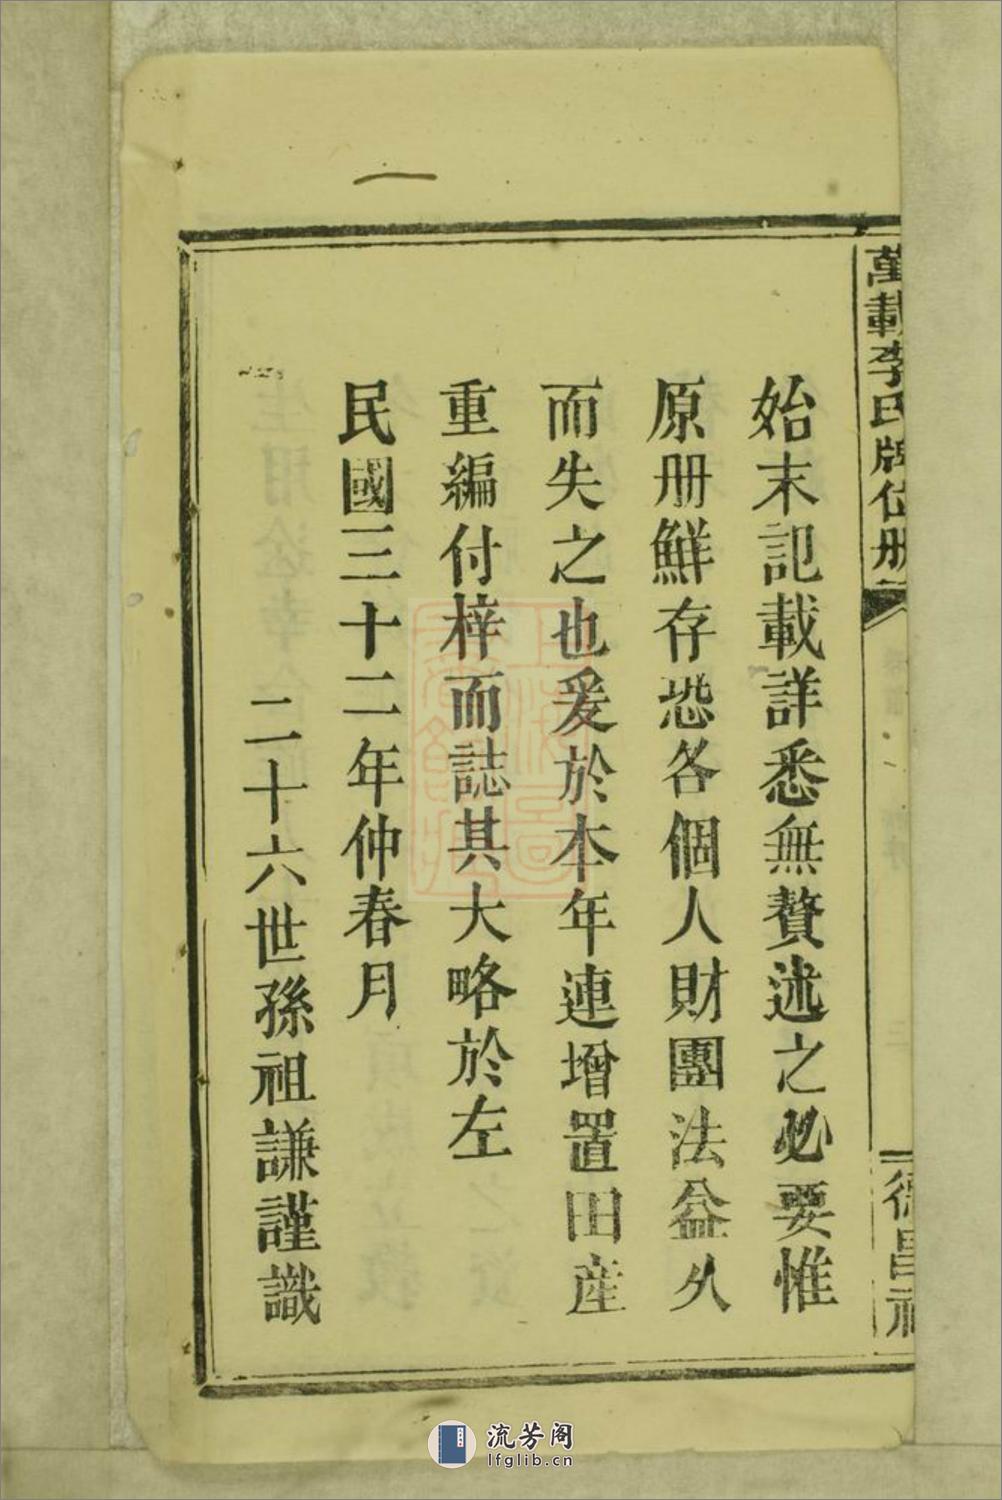 萬載李氏牌位册
德昌祠
始末記載詳悉無贅述之必要惟
原册鮮存恐各個人財團法益久
而失之也爰於本年連增置田産
重編付梓而誌其大略於左
民國三十二年仲春月
二十六世孫祖謙謹識
流芳阁
lfglib.cn